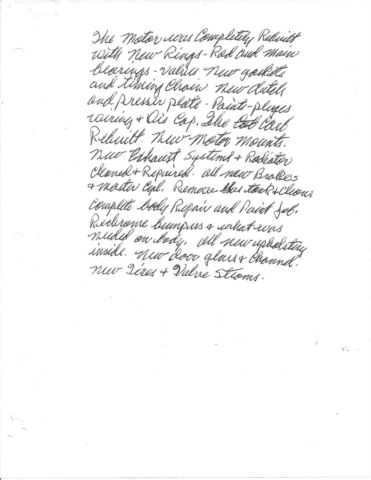 The Motor was Completely Rebuilt
with New Rings - Rod and main
bearings - valves New gaskets
and timing Chain New Clutch
and pressir plate - Points - pluges
wiring & Dis Cap. The Carb
Rebuilt. New Motor Mounts.
New Exhaust Systems & Radiator
Cleaned & Repaired. All new Brakes
& master Cyl. Remove Gas tank & Clean
Complete body Repair and Paint Job.
Rechrome bumpers & what was
needed on body. All new upholstery
inside. New door glass & Channel.
New Tires & Valve Stems.